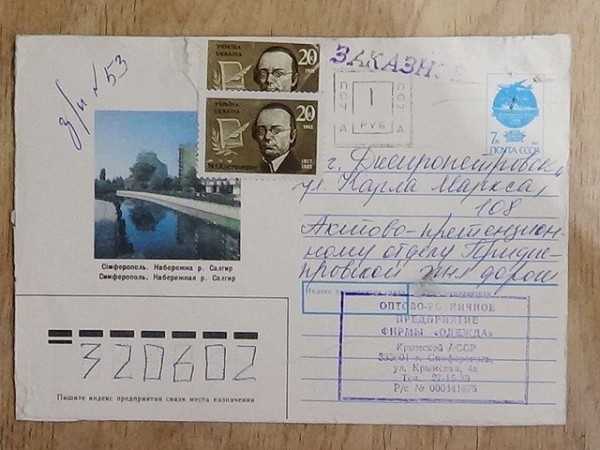 з/п № 53
УКРАЇНА
UKRAINE
20
1992
УКРАЇНА
UKRAINE
20
1992
1817
1885
ЗАКАЗН
ПОЧТА
1
РУБ
ПОЧТА
7к
ПОЧТА СССР
г. Днепропетровск
ул. Карла Маркса,
108
Актово-претензион-
ному отделу Придне-
провской жел дороги
Сімферополь. Набережна р. Салгир
Симферополь. Набережная р. Салгир
ОПТОВО-РОЗНИЧНОЕ
ПРЕДПРИЯТИЕ
ФИРМЫ «ОДЕЖДА»
Крымской АССР
333001 г. Симферополь,
ул. Крымская, 4а
Тел.
Р/с № 000141675
320602
Пишите индекс предприятия связи места назначения